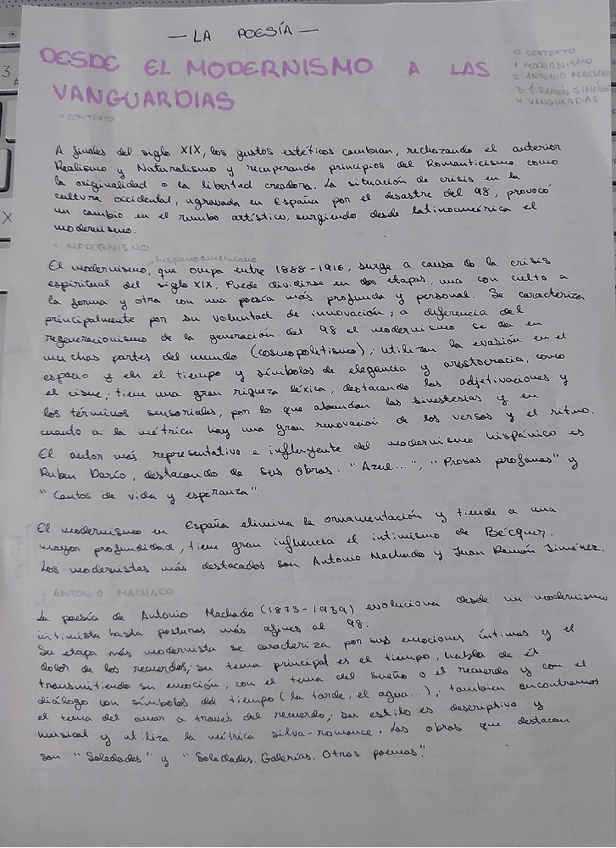 — LA POESÍA —
DESDE EL MODERNISMO A LAS
VANGUARDIAS
0 CONTEXTO
1 MODERNISMO
2 ANTONIO MACHADO
3 J. RAMÓN JIMÉNEZ
4 VANGUARDIAS
° CONTEXTO
A finales del siglo XIX, los gustos estéticos cambian, rechazando el anterior
Realismo y Naturalismo y recuperando principios del Romanticismo como
la originalidad o la libertad creadora. La situación de crisis en la
cultura occidental, agravada en España por el desastre del 98, provocó
un cambio en el rumbo artístico, surgiendo desde latinoamérica el
modernismo.
1 MODERNIZMO
hispanoamericano
El modernismo, que ocupa entre 1888-1916, surge a causa de la crisis
espiritual del siglo XIX. Puede dividirse en dos etapas, una con culto a
la forma y otra con una poesía más profunda y personal. Se caracteriza
principalmente por su voluntad de innovación; a diferencia del
regeneracionismo de la generación del 98 el modernismo se da en
muchas partes del mundo (cosmopolitismo); utilizan la evasión en el
espacio y en el tiempo y símbolos de elegancia y aristocracia, como
el cisne; tiene una gran riqueza léxica, destacando las adjetivaciones y
los términos sensoriales, por lo que abundan las sinestesias y en
cuanto a la métrica hay una gran renovación de los versos y el ritmo.
El autor más representativo e influyente del modernismo hispánico es
Ruben Darío, destacando de sus obras: "Azul...", "Prosas profanas" y
"Cantos de vida y esperanza"
El modernismo en España elimina la ornamentación y tiende a una
mayor profundidad, tiene gran influencia el intimismo de Bécquer.
Los modernistas más destacados son Antonio Machado y Juan Ramón Jiménez.
2 ANTONIO MACHADO
La poesía de Antonio Machado (1875-1939) evoluciona desde un modernismo
intimista hasta posturas más afines al 98.
Su etapa más modernista se caracteriza por sus emociones íntimas y el
dolor de los recuerdos; su tema principal es el tiempo, habla de él
transmitiendo su emoción, con el tema del sueño o el recuerdo y con el
diálogo con símbolos del tiempo (la tarde, el agua...); también encontramos
el tema del amor a través del recuerdo; su estilo es descriptivo y
musical y utiliza la métrica silva-romance. Las obras que destacan
son "Soledades" y "Soledades. Galerías. Otros poemas".